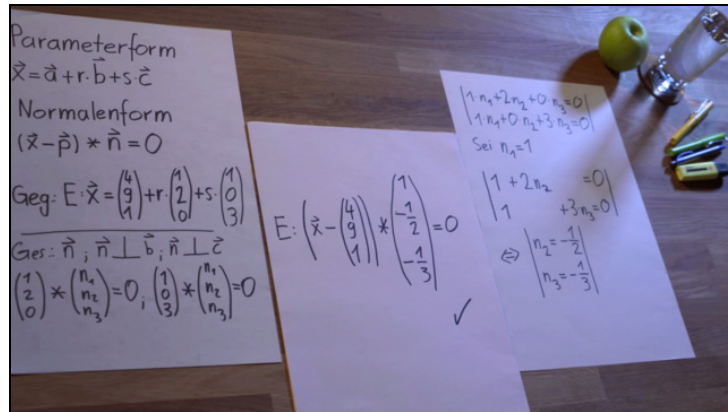 Parameterform
x⃗ = a⃗ + r · b⃗ + s · c⃗
Normalenform
(x⃗ − p⃗) * n⃗ = 0
Geg: E: x⃗ = (4 9 1) + r · (1 2 0) + s · (1 0 3)
Ges: n⃗ ; n⃗ ⊥ b⃗ ; n⃗ ⊥ c⃗
(1 2 0) * (n₁ n₂ n₃) = 0 ; (1 0 3) * (n₁ n₂ n₃) = 0
E: (x⃗ − (4 9 1)) * (1 −1/2 −1/3) = 0
✓
|1·n₁ + 2n₂ + 0·n₃ = 0|
|1·n₁ + 0·n₂ + 3·n₃ = 0|
Sei n₁ = 1
|1 + 2n₂ = 0|
|1 + 3n₃ = 0|
⇔ |n₂ = −1/2|
|n₃ = −1/3|